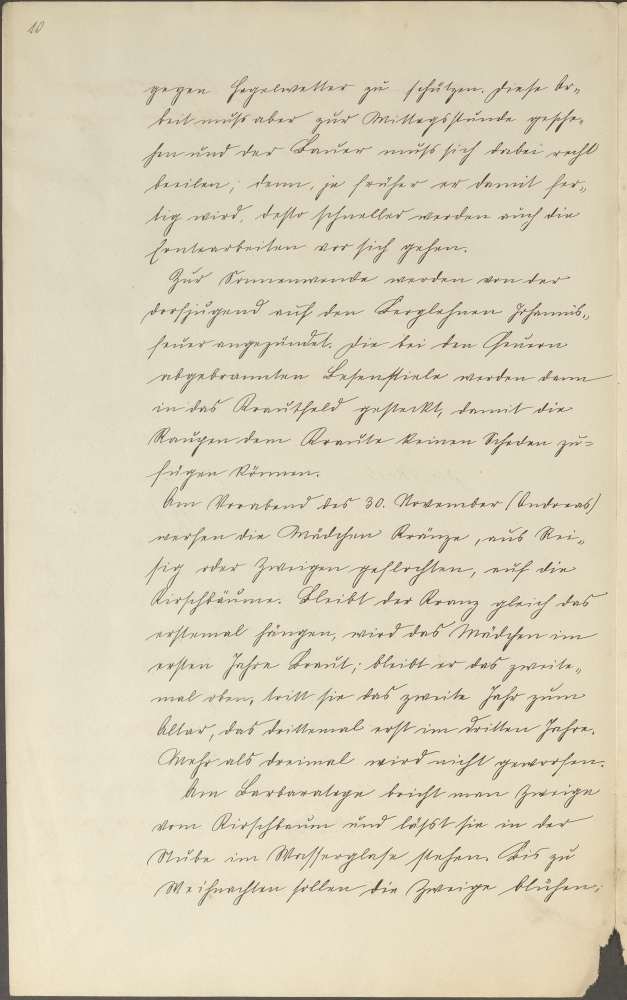 10
gegen Hagelwetter zu schützen. Diese Ar-
beit muss aber zur Mittagsstunde gesche-
hen und der Bauer muss sich dabei recht
beeilen; denn, je früher er damit fer-
tig wird, desto schneller werden auch die
Erntearbeiten vor sich gehen.
Zur Sonnenwende werden von der
Dorfjugend auf den Berglehnen Johannis-
feuer angezündet. Die bei den Feuern
abgebrannten Besenstiele werden dann
in das Krautfeld gesteckt, damit die
Raupen dem Kraute keinen Schaden zu-
fügen können.
Am Vorabend des 30. November (Andreas)
werfen die Mädchen Kränze, aus Rei-
sig oder Zweigen geflochten, auf die
Kirschbäume. Bleibt der Kranz gleich das
erstemal hängen, wird das Mädchen im
ersten Jahre Braut; bleibt er das zweite-
mal oben, tritt sie das zweite Jahr zum
Altar, das drittemal erst im dritten Jahre.
Mehr als dreimal wird nicht geworfen.
Am Barbaratage bricht man Zweige
vom Kirschbaum und lässt sie in der
Stube im Wasserglase stehen. Bis zu
Weihnachten sollen die Zweige blühen;